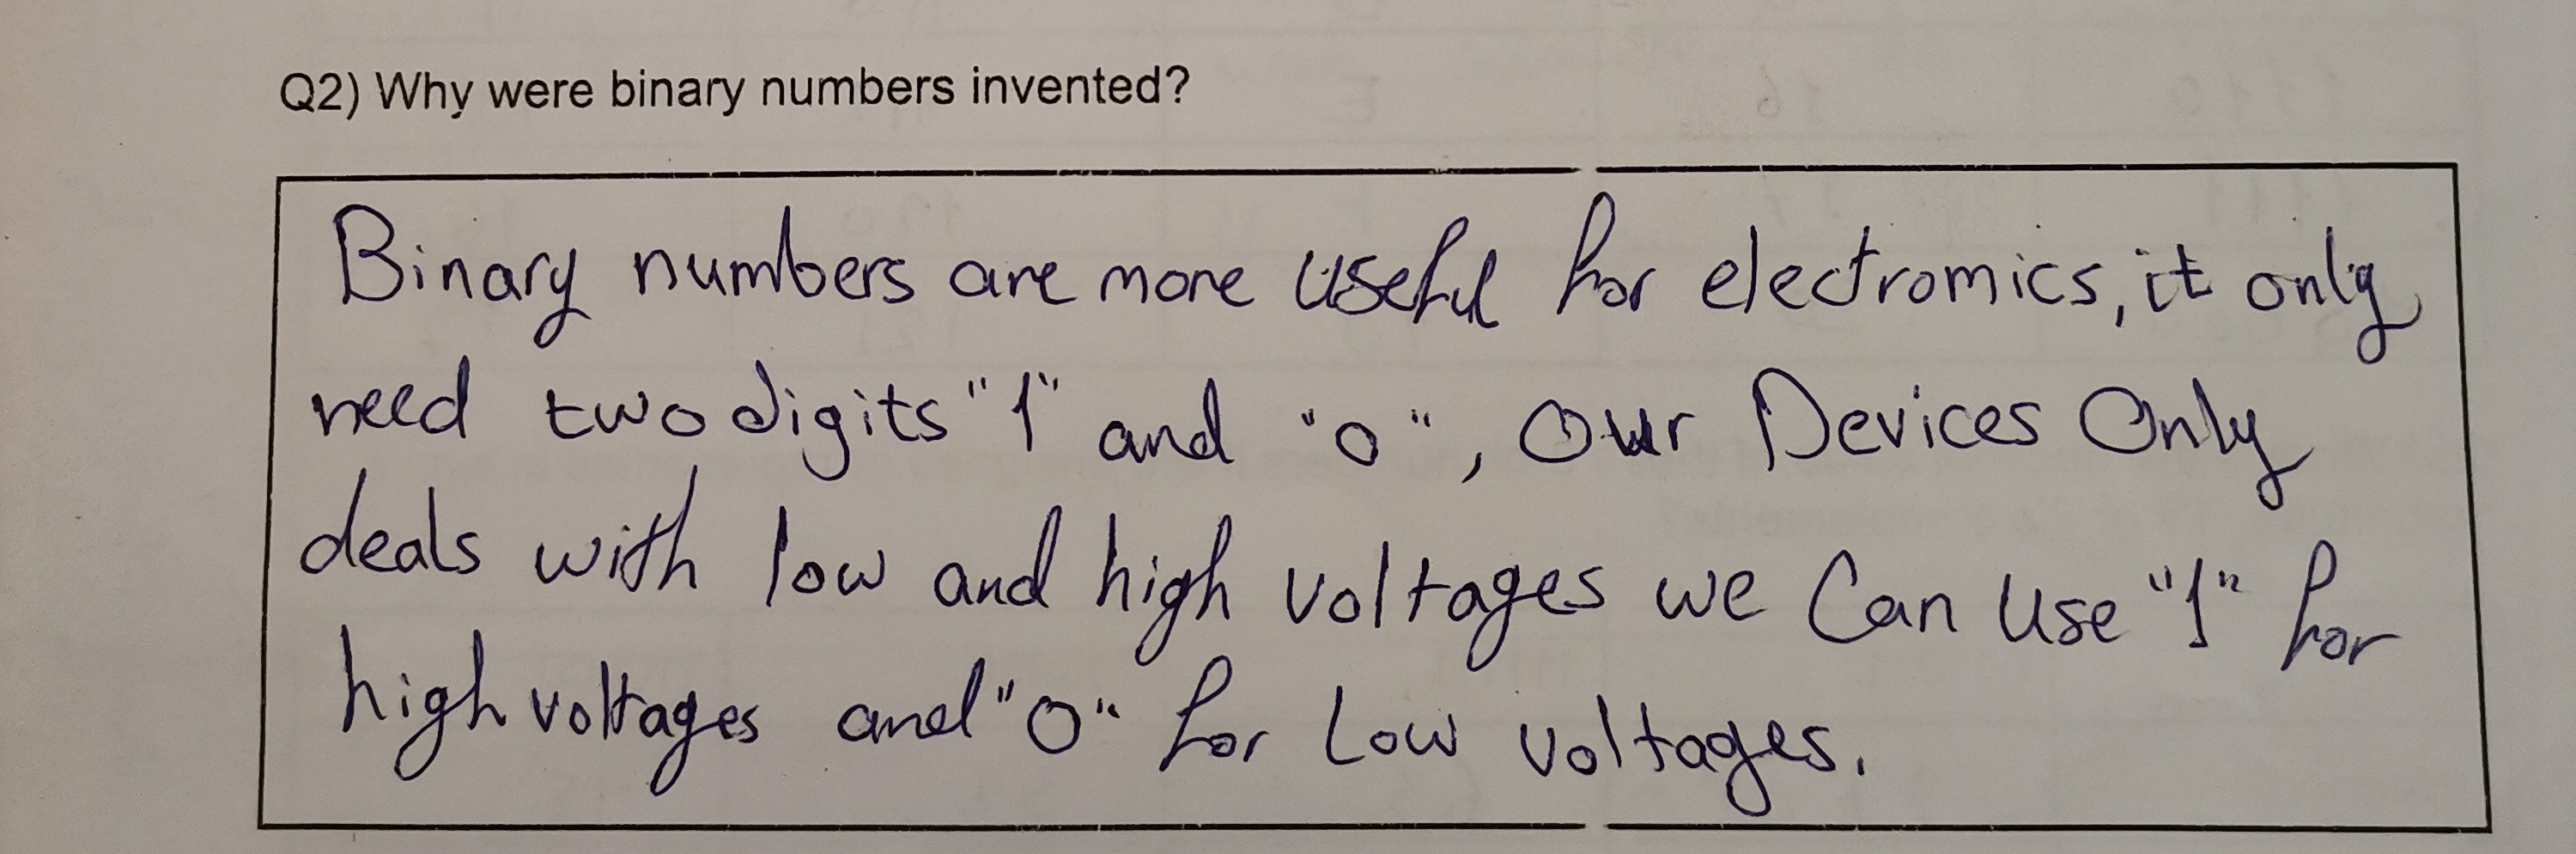 Q2) Why were binary numbers invented?
Binary numbers are more useful for electromics, it only
need two digits "1" and "0", Our Devices Only
deals with low and high voltages we Can Use "1" for
high voltages and "0" for Low voltages.